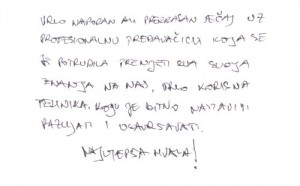 VRLO NAPORAN ALI PREKRASAN TEČAJ UZ
PROFESIONALNU PREDAVAČICU KOJA SE
JE POTRUDILA PRENIJETI SVA SVOJA
ZNANJA NA NAS. VRLO KORISNA
TEHNIKA. KOJU JE BITNO NASTAVITI
RAZVIJATI I USAVRŠAVATI.
NAJLJEPŠA HVALA!